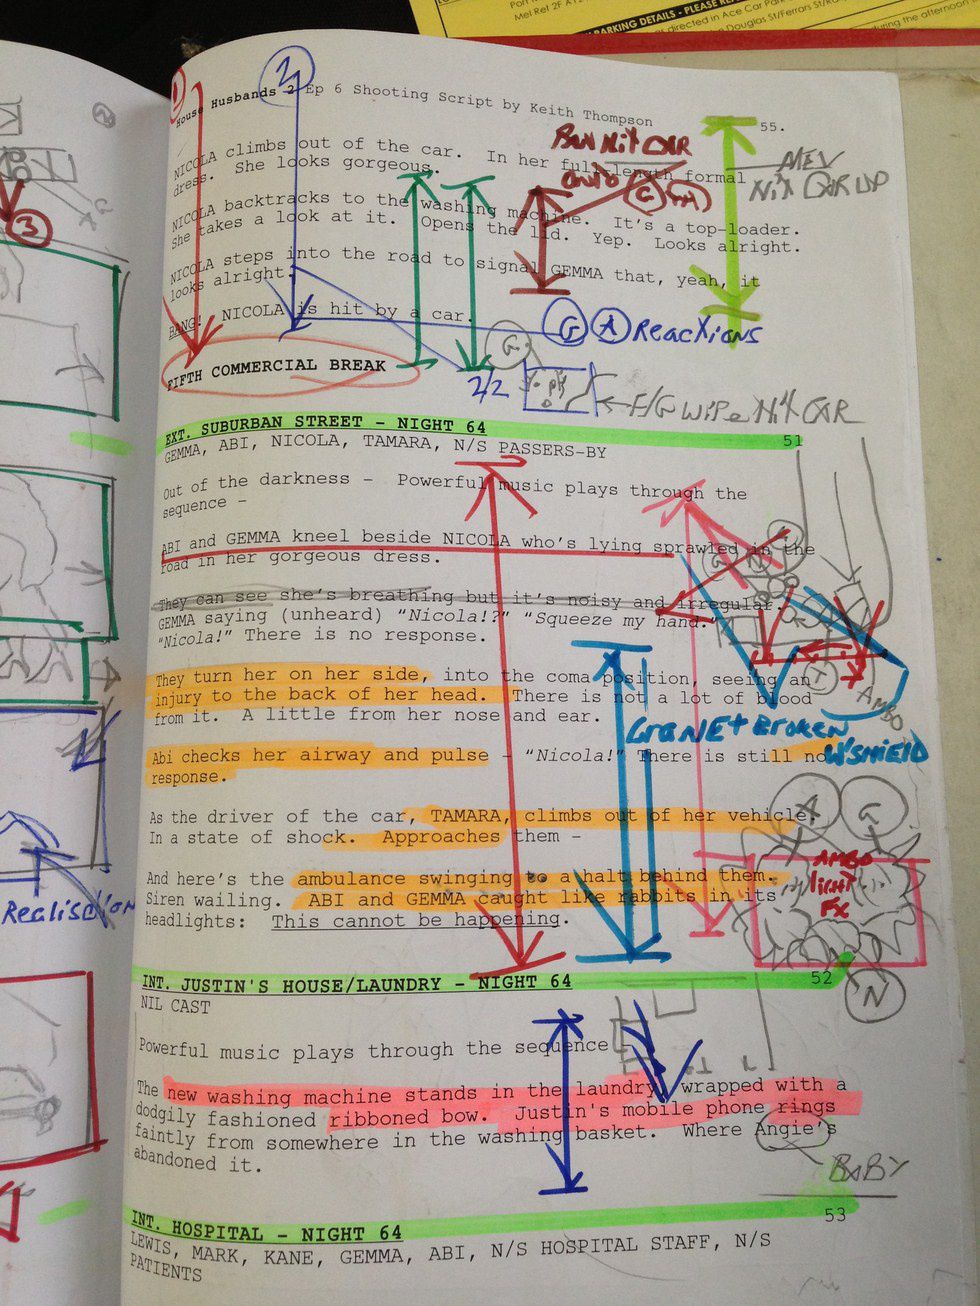 PARKING DETAILS - PLEASE
directed in Ace Car Park
Douglas St/Ferrars St/
during the afternoon
1
2
House Husbands 2 Ep 6 Shooting Script by Keith Thompson
55.
NICOLA climbs out of the car. In her full length formal
dress. She looks gorgeous.
NICOLA backtracks to the washing machine. It's a top-loader.
She takes a look at it. Opens the lid. Yep. Looks alright.
NICOLA steps into the road to signal GEMMA that, yeah, it
looks alright.
BANG! NICOLA is hit by a car.
G A REACTIONS
FIFTH COMMERCIAL BREAK
G
2/2
F/G WIPE NIX CAR
EXT. SUBURBAN STREET - NIGHT 64
51
GEMMA, ABI, NICOLA, TAMARA, N/S PASSERS-BY
Out of the darkness - Powerful music plays through the
sequence -
ABI and GEMMA kneel beside NICOLA who's lying sprawled in the
road in her gorgeous dress.
They can see she's breathing but it's noisy and irregular.
GEMMA saying (unheard) "Nicola!?" "Squeeze my hand."
"Nicola!" There is no response.
They turn her on her side, into the coma position, seeing an
injury to the back of her head. There is not a lot of blood
from it. A little from her nose and ear.
AMBO
CRANE + BROKEN
W'SHIELD
Abi checks her airway and pulse - "Nicola!" There is still no
response.
As the driver of the car, TAMARA, climbs out of her vehicle.
In a state of shock. Approaches them -
A G
And here's the ambulance swinging to a halt behind them.
Siren wailing. ABI and GEMMA caught like rabbits in its
headlights: This cannot be happening.
AMBO
LIGHT
FX
N
INT. JUSTIN'S HOUSE/LAUNDRY - NIGHT 64
52
NIL CAST
Powerful music plays through the sequence
The new washing machine stands in the laundry, wrapped with a
dodgily fashioned ribboned bow. Justin's mobile phone rings
faintly from somewhere in the washing basket. Where Angie's
abandoned it.
BABY
INT. HOSPITAL - NIGHT 64
53
LEWIS, MARK, KANE, GEMMA, ABI, N/S HOSPITAL STAFF, N/S
PATIENTS
3
Realisation